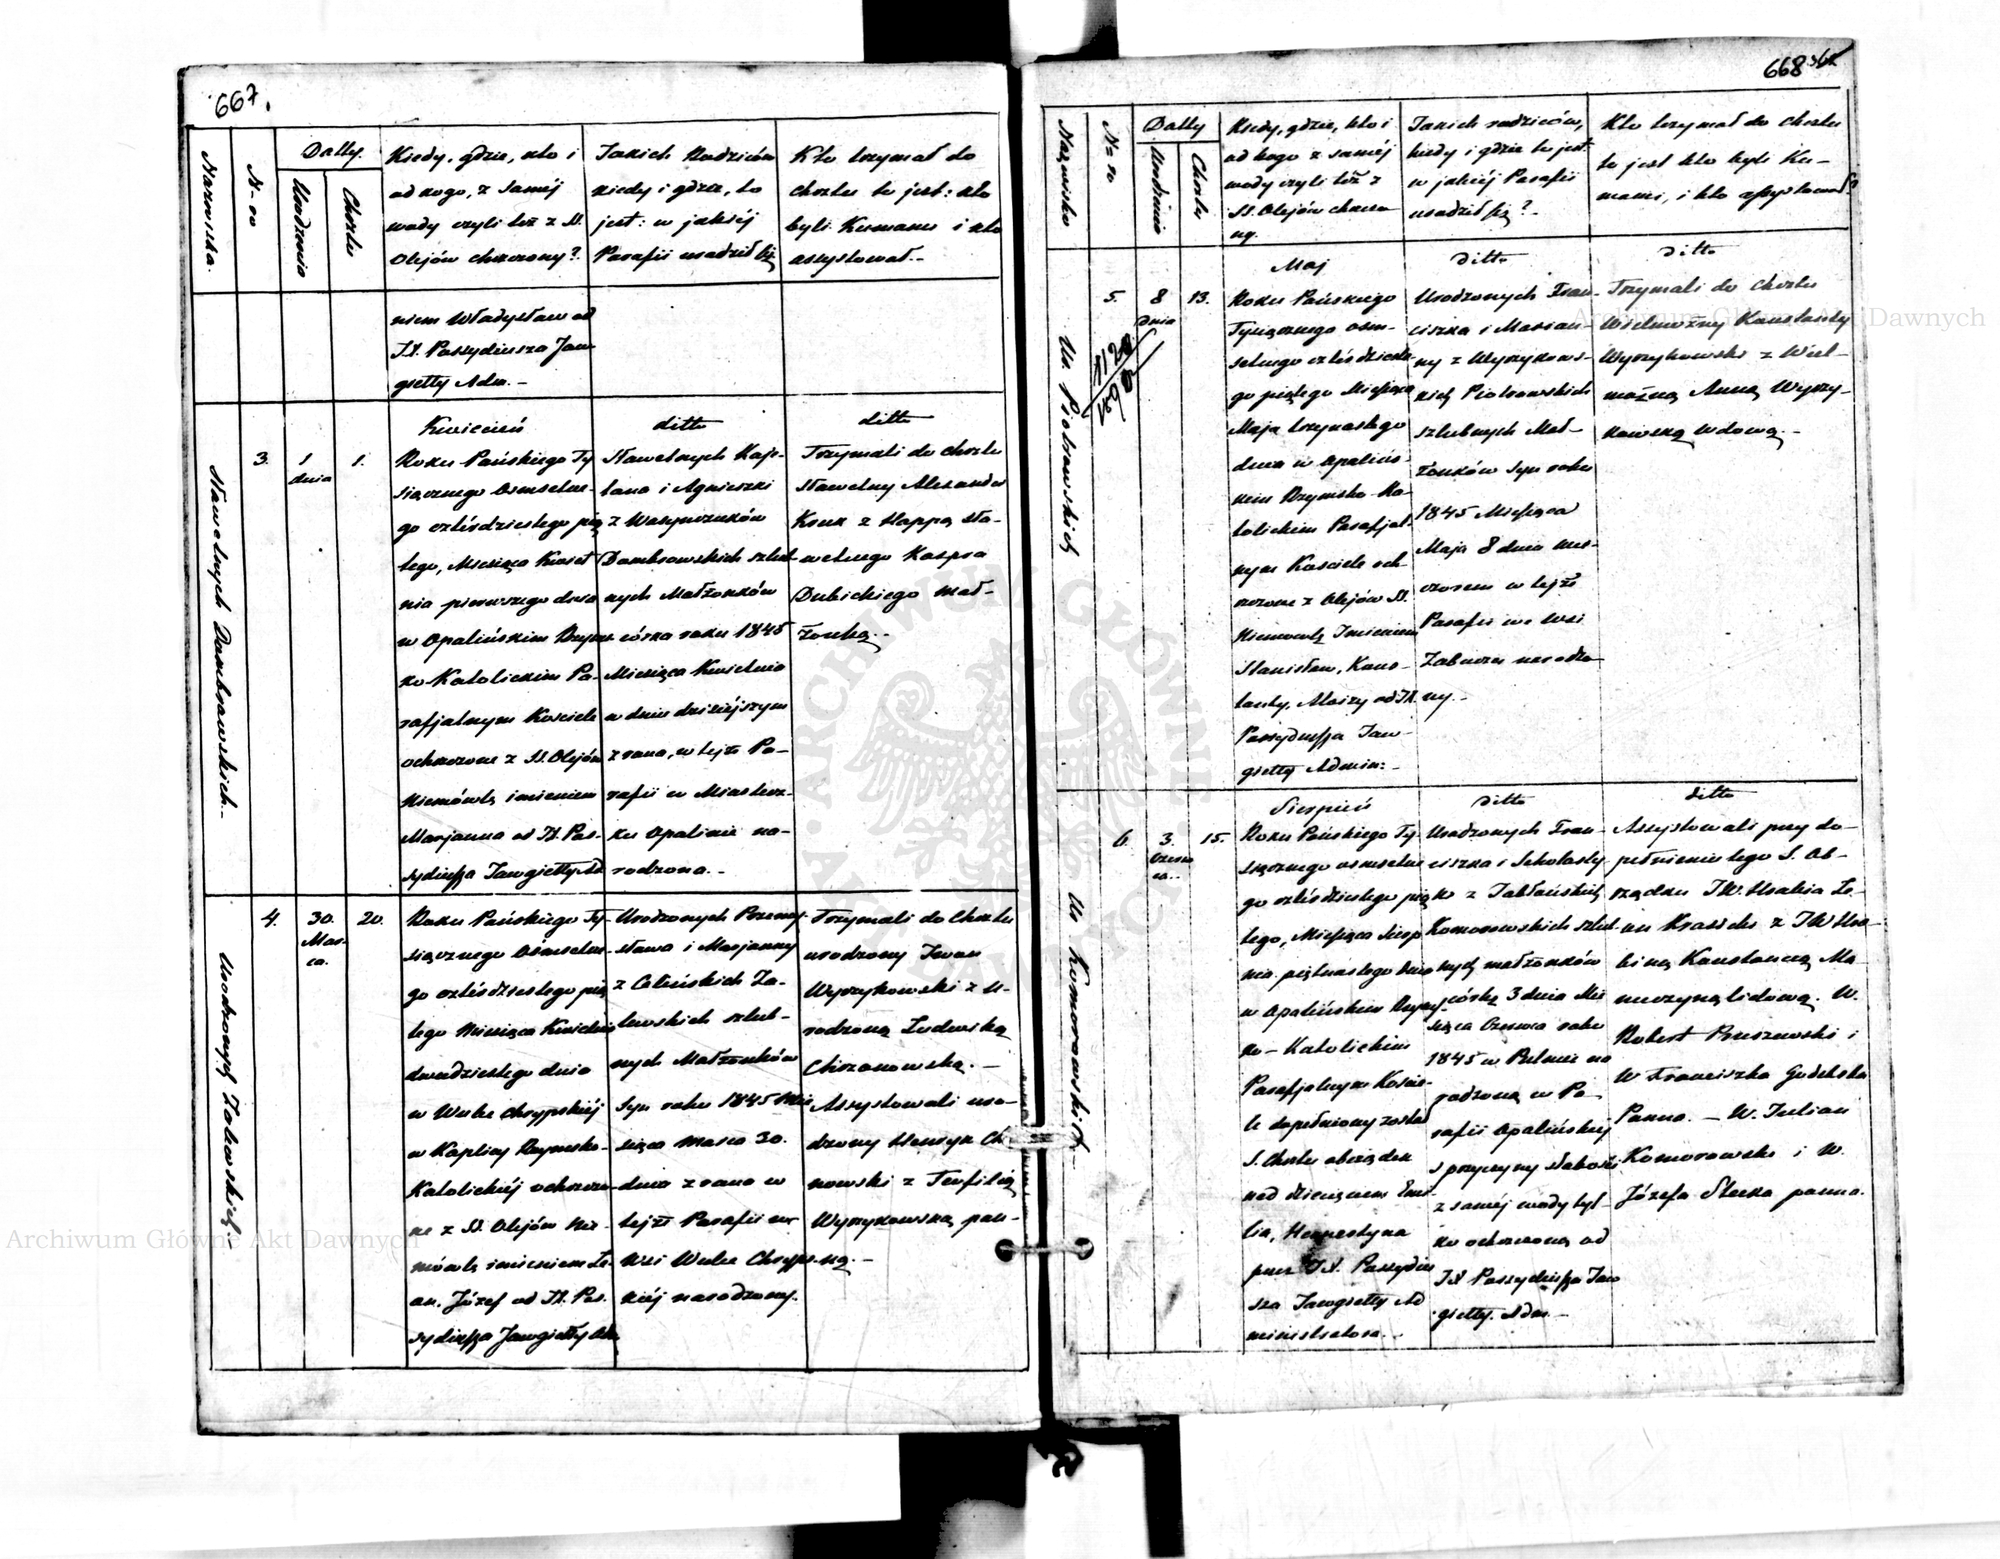 667.
Nazwiska.
N-ro
Datty.
Urodzenia
Chrztu
Kiedy, gdzie, kto i
od kogo, z samej
wody czyli też z SS.
Olejów chrzczony?
Jakich Rodziców
kiedy i gdzie, to
jest: w jakiéj
Parafii urodził się
Kto trzymał do
chrztu to jest: kto
byli Kumami i kto
assystował.-
niem Władysław od
JX. Passydiusza Jaw
giełły Adm.-
Sławetnych Dambrowskich.-
3.
1
dnia
1.
Kwiecień
Roku Pańskiego Ty
siącznego Osmsetne-
go czterdziestego pią
tego, Miesiąca Kwiet
nia pierwszego dnia
w Opalińskim Rzyms
ko Katolickim Pa-
rafjalnym Kościele
ochrzczone z SS. Olejów
Niemówlę imieniem
Marjanna od JX. Pas-
sydiussza Jawgiełły Ad
ditto
Sławetnych Kaje-
tana i Agnieszki
z Wasynczuków
Dambrowskich szlub-
nych Małżonków
córka roku 1845
Miesiąca Kwietnia
w dniu dzisiéjszym
z rana, w tejże Pa-
rafii w Miastecz-
ku Opalinie na-
rodzona.-
ditto
Trzymali do chrztu
Sławetny Alexander
Kruk z Happą Sła-
wetnego Kaspra
Dubickiego mał-
żonką.-
Urodzonych Zalewskich.-
4.
30.
Mar-
ca.
20.
Roku Pańskiego Ty-
siącznego Osmsetne-
go czterdziestego pią
tego Miesiąca Kwietnia
dwudziestego dnia
w Wulce Chrypskiéj
w Kaplicy Rzymsko-
Katolickiéj ochrzczo-
ne z SS. Olejów Nie-
mówle imieniem Ja-
an. Józef od JX. Pas.
sydiussza Jawgiełły Adm
Urodzonych Przemy-
sława i Marjanny
z Celińskich Za-
lewskich szlub-
nych Małżonków
Syn roku 1845 Mie
siąca Marca 30.
dnia z rana w
tejże Parafii we
Wsi Wulce Chryps-
kiéj narodzony.
Trzymali do Chrztu
urodzony Iwan
Wyrzykowski z u-
rodzoną Ludwiką
Chrzanowską.-
Assystowali uro-
dzony Henryk Ch
nowski z Teofilią
Wyrzykowską pan-
ną.-
668
Nazwisko
N-ro
Datty
Urodzenia
Chrztu
Kiedy, gdzie, kto i
od kogo z saméj
wody czyli też z
SS. Olejów chrzczo
ny.
Jakich rodziców,
kiedy i gdzie to jest:
w jakiéj Parafii
urodził się?-
Kto trzymał do chrztu
to jest kto byli Ku-
mami, i kto assystował?
Ur. Piotrowskich
5.
8
dnia
13.
Maj
Roku Pańskiego
Tysiącznego osm-
setnego czterdzieste
go piątego Miesiąca
Maja trzynastego
dnia w Opalińs-
kim Rzymsko-Ka-
tolickim Parafjal-
nym Kościele och-
rzczone z Olejów SS.
Niemowlę Imieniem
Stanisław, Kons-
tanty, Aloizy od JX.
Passydiussza Jaw-
giełły Admin:-
ditto
Urodzonych Fran-
ciszka i Marian-
ny z Wyrzykows-
kich Piotrowskich
szlubnych Mał-
żonków Syn roku
1845 Miesiąca
Maja 8 dnia wie-
czorem w tejże
Parafii we Wsi
Zabuzu narodzo
ny.-
ditto
Trzymali do Chrztu
Wielmożny Konstanty
Wyrzykowski z Wiel-
możną Anną Wyrzy-
kowską Wdową.-
Ur. Komorowskich.-
6.
3.
Czerw
ca..
15.
Sierpień
Roku Pańskiego Ty-
siącznego osmsetne
go czterdziestego pią
tego, Miesiąca Sierp
nia piętnastego dnia
w Opalińskim Rzyms-
ko-Katolickim
Parafjalnym Koście-
le dopełniony został
S. Chrztu obrządek
nad dziecięciem Emi-
lia, Hernestyna
przez JX. Passydiu
sza Jawgiełły Ad
ministratora.-
ditto
Urodzonych Fran-
ciszka i Scholasty
ki z Jabłońskich
Komorowskich szlub
nych małżonków
córkę 3 dnia Mie
siąca Czerwca roku
1845 w Pulmie na
rodzoną w Pa-
rafii Opalińskiéj
z przyczyny słabości
z saméj wody tyl-
ko ochrzczoną od
JX Passydiussza Jaw
giełły. Adm-
ditto
Assystowali przy do-
pełnieniu tego S. Ob-
rządku JW. Hrabia Le-
on Krasicki z JW Hra-
biną Konstancją Mo-
Wdową. W.
Robert Pruszewski i
W Franciszka Gudelska
Panna.- W. Julian
Komorowski i W.
Józefa Stecka panna.
Archiwum Główne Akt Dawnych
Archiwum Główne Akt Dawnych
ARCHIWUM GŁÓWNE AKT DAWNYCH